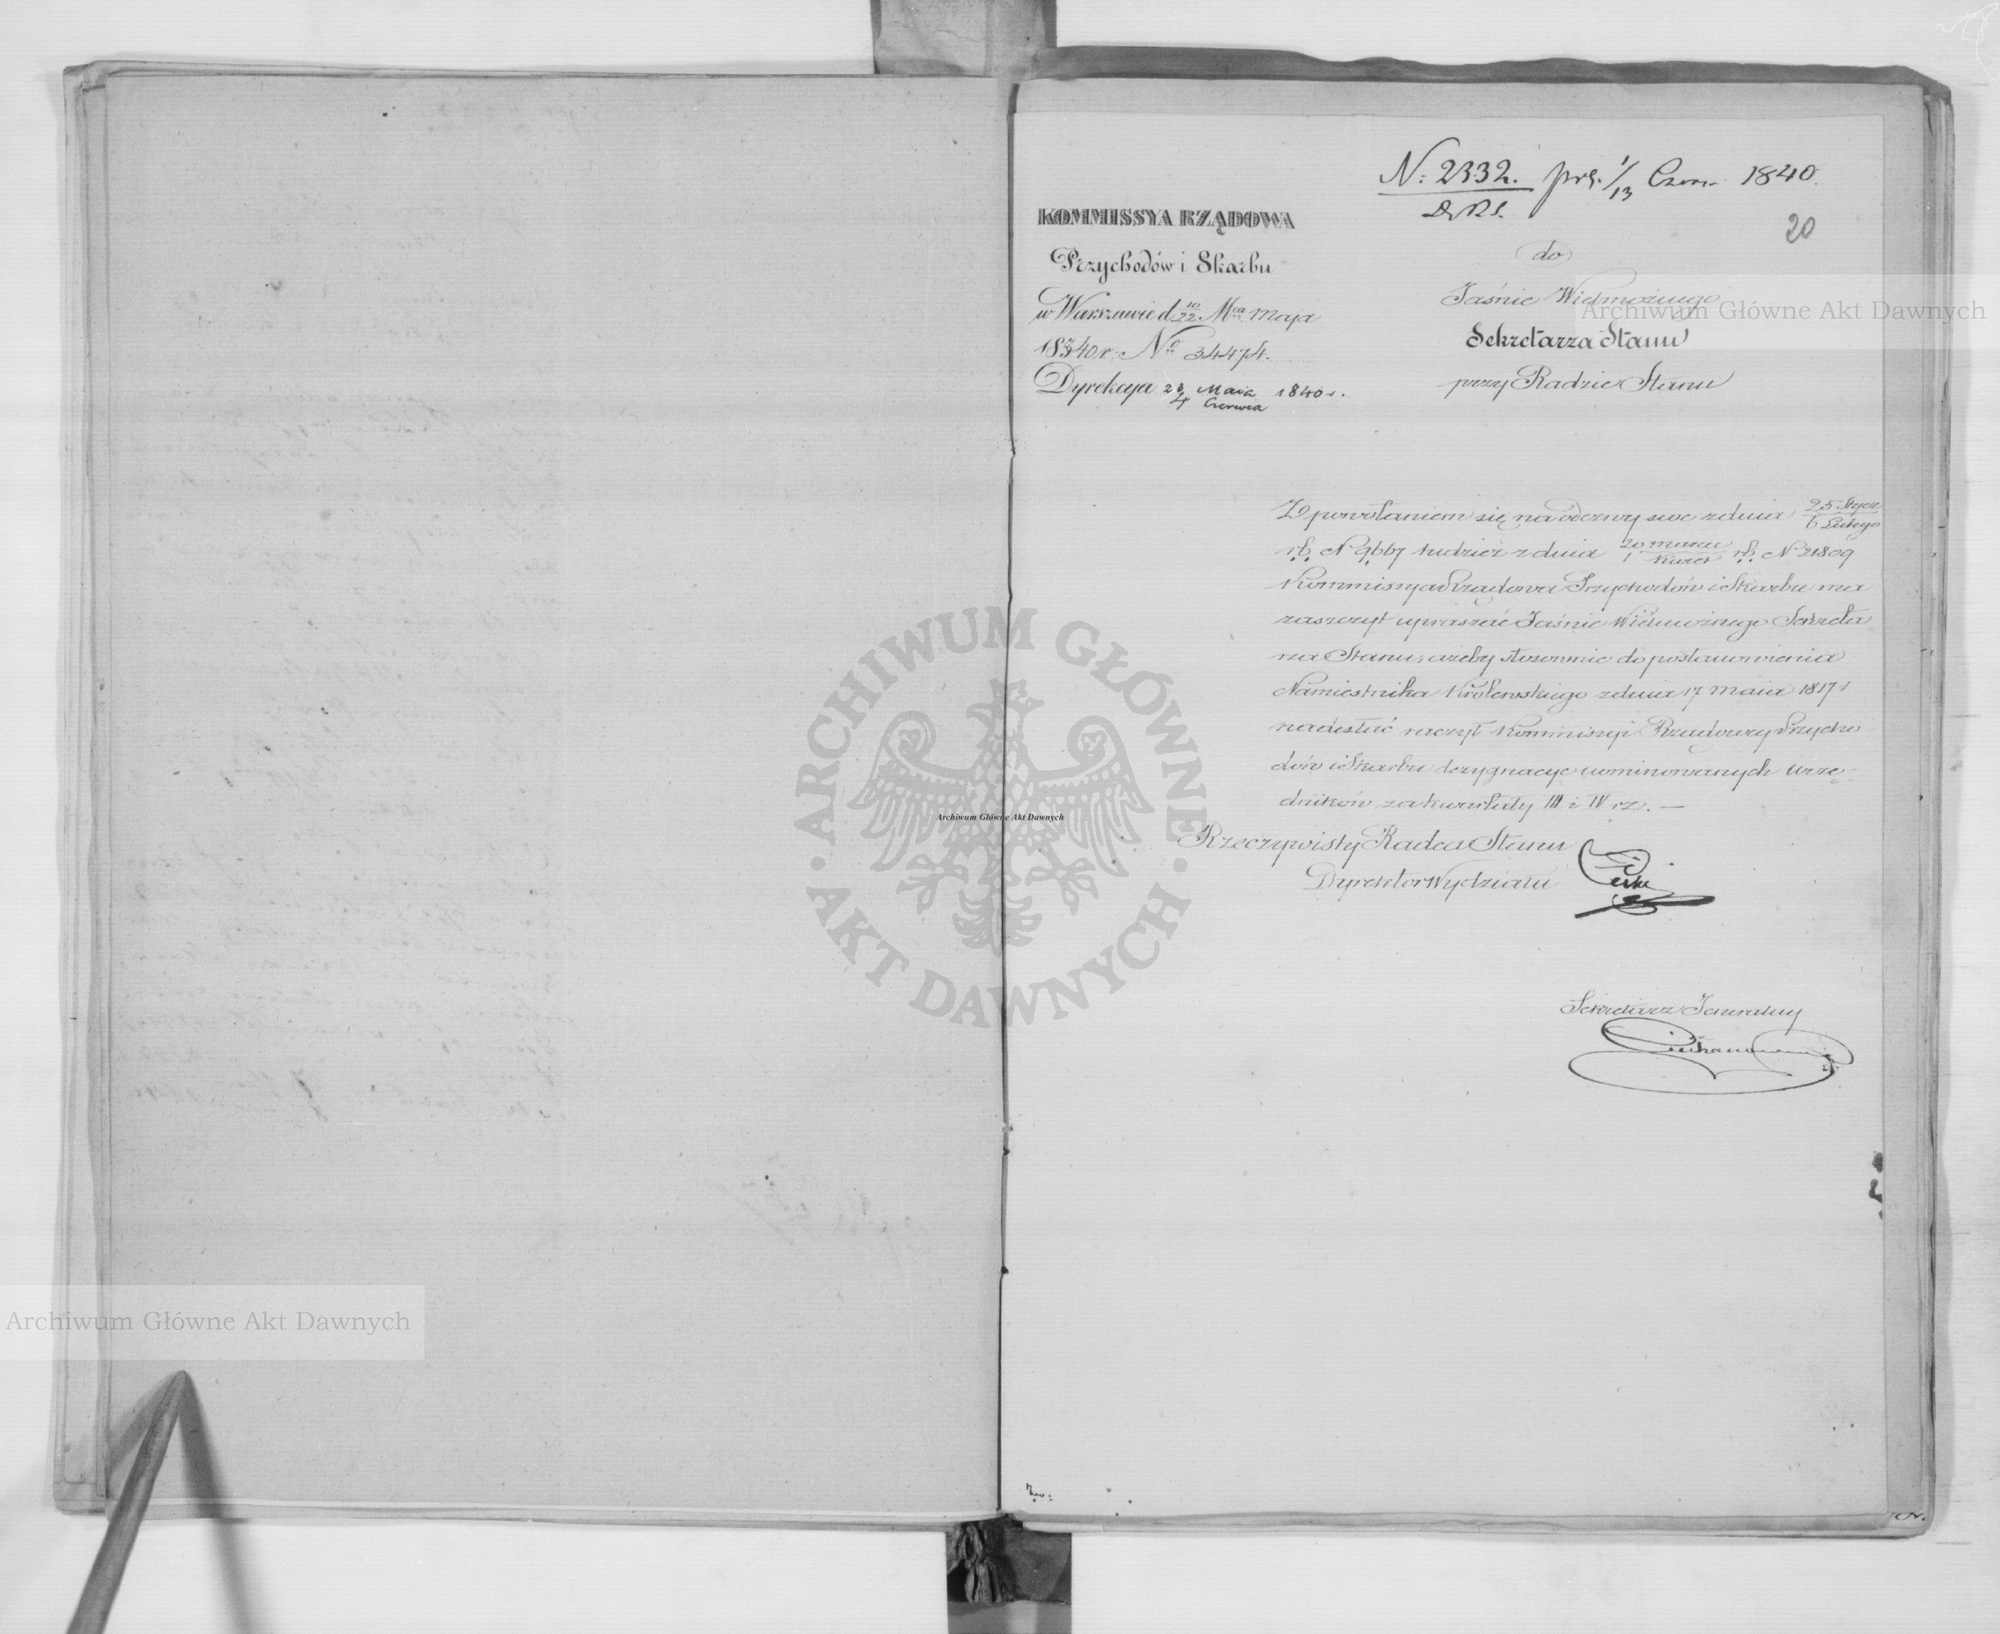 N: 2332. prs. 1/13 Czerw. 1840.
20
KOMMISSYA RZĄDOWA
Przychodów i Skarbu
w Warszawie d. 10/22 Mca Maja
1840 r. No 34474.
Dyrekcya 23 Maia / 4 Czerwca 1840 r.
do
Jaśnie Wielmożnego
Sekretarza Stanu
przy Radzie Stanu
Z powołaniem się na odezwy swe z dnia 25 Stycz / 6 Lutego
r.b. N 9667 tudzież z dnia 20 marca / 1 Kwiet r.b. N 21809
Kommissya Rządowa Przychodów i Skarbu ma
zaszczyt upraszać Jaśnie Wielmożnego Sekreta
rza Stanu, ażeby stosownie do postanowienia
Namiestnika Królewskiego z dnia 17 Maia 1817 r
nadesłać raczył Kommissyi Rządowey Przycho
dów i Skarbu dezygnacye nominowanych urzę-
dników za kwartały III i IV r z. —
Rzeczywisty Radca Stanu
Dyrektor Wydziału
Sekretarz Jeneralny
Archiwum Główne Akt Dawnych
Archiwum Główne Akt Dawnych
Archiwum Główne Akt Dawnych
ARCHIWUM GŁÓWNE AKT DAWNYCH